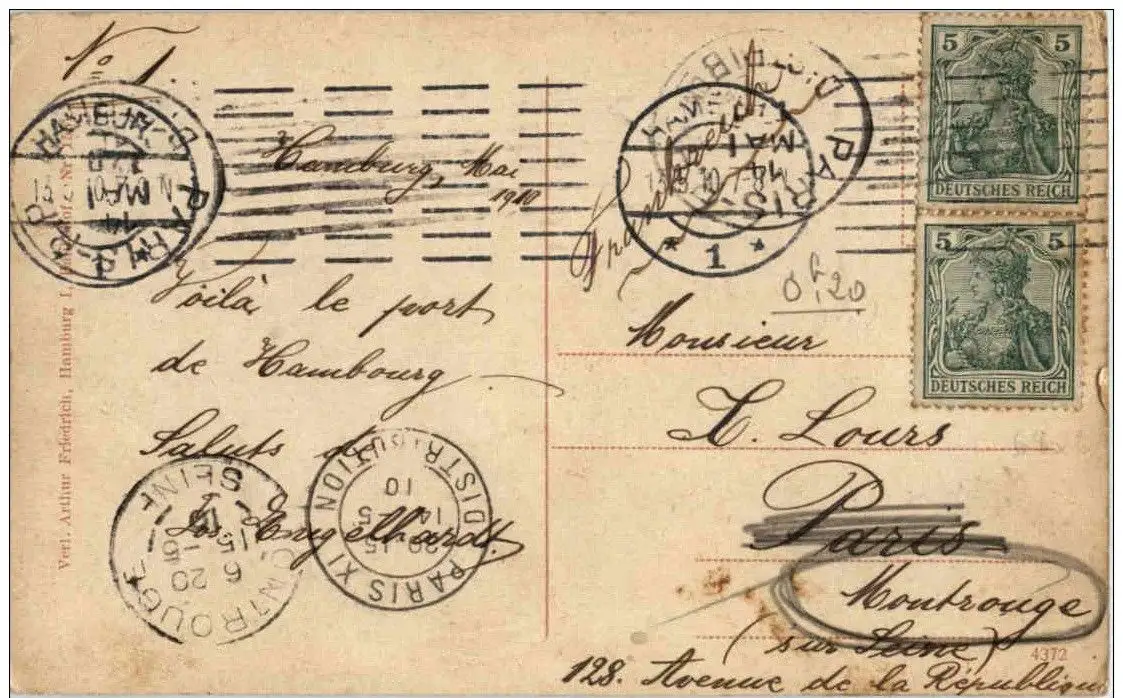 No 1.
Hamburg, Mai
1910
Voilà le port
de Hambourg
Saluts de
Jos. Engelhardt.
Frankreich
0f,20
Monsieur
L. Lours
Paris
Montrouge
(sur Seine)
128. Avenue de la République
5 5
DEUTSCHES REICH
5 5
DEUTSCHES REICH
HAMBURG
14
MAI
1
PARIS
HAMBURG
14
MAI
1
PARIS
PARIS XI DISTRIBUTION
20 15
14-5
10
MONTROUGE
SEINE
6 20
15 -5
10
Verl. Arthur Friedrich, Hamburg
4372